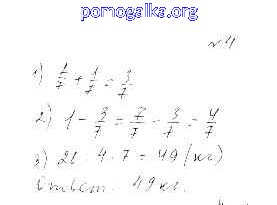 pomogalka.org
№4
1) 1/7 + 1/7 = 3/7
2) 1 - 3/7 = 7/7 - 3/7 = 4/7
3) 28 : 4 · 7 = 49 (кг)
Ответ: 49 кг.